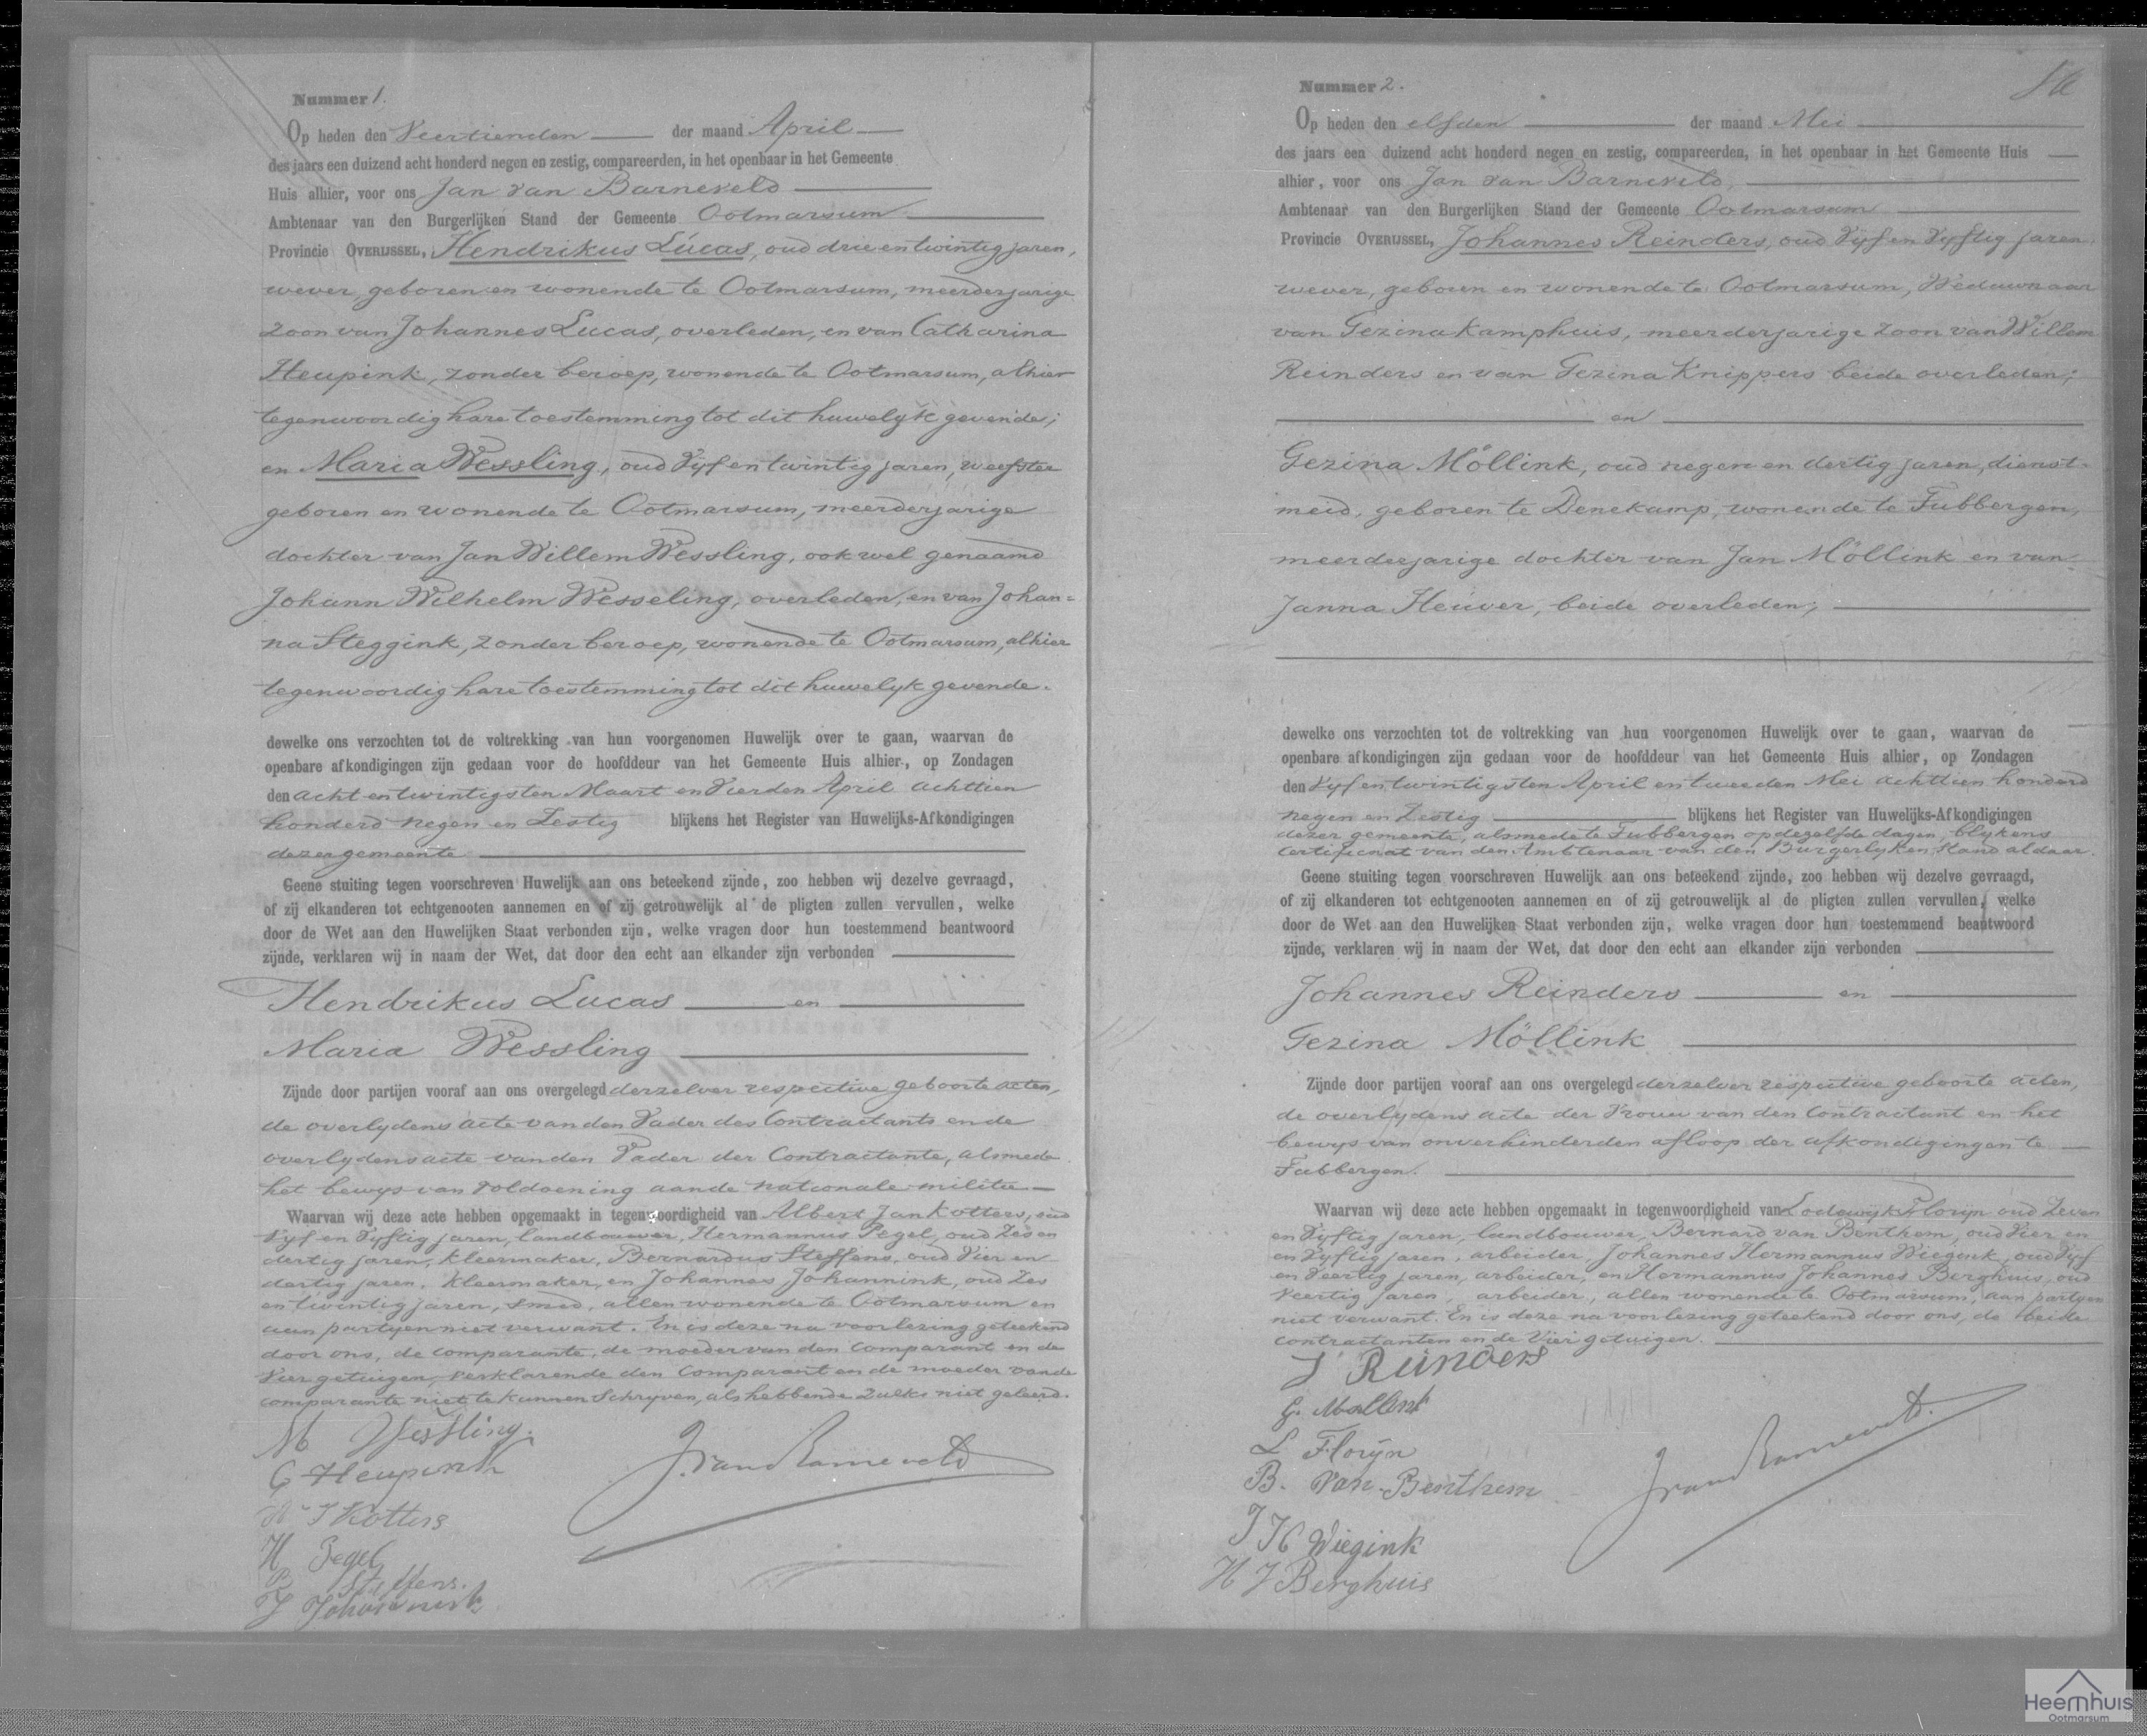 Nummer 1.
Op heden den Veertienden der maand April
des jaars een duizend acht honderd negen en zestig, compareerden, in het openbaar in het Gemeente
Huis alhier, voor ons Jan van Barneveld
Ambtenaar van den Burgerlijken Stand der Gemeente Ootmarsum
Provincie OVERIJSSEL, Hendrikus Lucas, oud drie en twintig jaren,
wever, geboren en wonende te Ootmarsum, meerderjarige
zoon van Johannes Lucas, overleden, en van Catharina
Heupink, zonder beroep, wonende te Ootmarsum, alhier
tegenwoordig hare toestemming tot dit huwelyk gevende;
en Maria Wessling, oud Vyf en twintig jaren, weefster
geboren en wonende te Ootmarsum, meerderjarige
dochter van Jan Willem Wessling, ook wel genaamd
Johann Wilhelm Wesseling, overleden, en van Johan=
na Steggink, zonder beroep, wonende te Ootmarsum, alhier
tegenwoordig hare toestemming tot dit huwelyk gevende.
dewelke ons verzochten tot de voltrekking van hun voorgenomen Huwelijk over te gaan, waarvan de
openbare afkondigingen zijn gedaan voor de hoofddeur van het Gemeente Huis alhier, op Zondagen
den acht en twintigsten Maart en Vierden April achttien
honderd negen en Zestig blijkens het Register van Huwelijks-Afkondigingen
dezer gemeente
Geene stuiting tegen voorschreven Huwelijk aan ons beteekend zijnde, zoo hebben wij dezelve gevraagd,
of zij elkanderen tot echtgenooten aannemen en of zij getrouwelijk al de pligten zullen vervullen, welke
door de Wet aan den Huwelijken Staat verbonden zijn, welke vragen door hun toestemmend beantwoord
zijnde, verklaren wij in naam der Wet, dat door den echt aan elkander zijn verbonden
Hendrikus Lucas en
Maria Wessling
Zijnde door partijen vooraf aan ons overgelegd derzelver respective geboorte acten,
de overlydens acte van den Vader des Contractants en de
overlydens acte van den Vader der Contractante, alsmede
het bewys van voldoening aan de nationale militie
Waarvan wij deze acte hebben opgemaakt in tegenwoordigheid van Albert Jan Kotters, oud
Vyf en Vyftig jaren, landbouwer, Hermannus Pegel, oud Zes en
dertig jaren, kleermaker, Bernardus Steffens, oud Vier en
dertig jaren, kleermaker, en Johannes Johannink, oud Zes
en twintig jaren, smid, allen wonende te Ootmarsum en
aan partyen niet verwant. En is deze na voorlezing geteekend
door ons, de comparante, de moeder van den Comparant en de
Vier getuigen, verklarende den Comparant en de moeder van de
comparante niet te kunnen schryven, als hebbende zulks niet geleerd.
M Wessling.
C Heupink
J van Barneveld
A J Kotters
H Pegel
B Steffens.
J Johannink
Nummer 2.
Op heden den elfden der maand Mei
des jaars een duizend acht honderd negen en zestig, compareerden, in het openbaar in het Gemeente Huis
alhier, voor ons Jan van Barneveld,
Ambtenaar van den Burgerlijken Stand der Gemeente Ootmarsum
Provincie OVERIJSSEL, Johannes Reinders, oud Vyf en Vyftig jaren,
wever, geboren en wonende te Ootmarsum, Weduwnaar
van Gezina Kamphuis, meerderjarige zoon van Willem
Reinders en van Gezina Knippers beide overleden;
en
Gezina Möllink, oud negen en dertig jaren, dienst-
meid, geboren te Denekamp, wonende te Tubbergen,
meerderjarige dochter van Jan Möllink en van
Janna Heuver, beide overleden;
dewelke ons verzochten tot de voltrekking van hun voorgenomen Huwelijk over te gaan, waarvan de
openbare afkondigingen zijn gedaan voor de hoofddeur van het Gemeente Huis alhier, op Zondagen
den Vyf en twintigsten April en tweeden Mei achttien honderd
negen en Zestig blijkens het Register van Huwelijks-Afkondigingen
dezer gemeente, alsmede te Tubbergen op dezelfde dagen, blykens
certificaat van den Ambtenaar van den Burgerlyken Stand aldaar.
Geene stuiting tegen voorschreven Huwelijk aan ons beteekend zijnde, zoo hebben wij dezelve gevraagd,
of zij elkanderen tot echtgenooten aannemen en of zij getrouwelijk al de pligten zullen vervullen, welke
door de Wet aan den Huwelijken Staat verbonden zijn, welke vragen door hun toestemmend beantwoord
zijnde, verklaren wij in naam der Wet, dat door den echt aan elkander zijn verbonden
Johannes Reinders en
Gezina Möllink
Zijnde door partijen vooraf aan ons overgelegd derzelver respective geboorte acten,
de overlydens acte der Vrouw van den Contractant en het
bewys van onverhinderden afloop der afkondigingen te
Tubbergen.
Waarvan wij deze acte hebben opgemaakt in tegenwoordigheid van Lodewyk Floryn oud Zeven
en Vyftig jaren, landbouwer, Bernard van Benthem, oud Vier en
en Vyftig jaren, arbeider, Johannes Hermannus Wiegink, oud Vyf
en Veertig jaren, arbeider, en Hermannus Johannes Berghuis, oud
Veertig jaren, arbeider, allen wonende te Ootmarsum, aan partyen
niet verwant. En is deze na voorlezing geteekend door ons, de beide
contractanten en de Vier getuigen.
J Reinders
G. Mollink
L Floryn
B. van Benthem
J van Barneveld.
J H Wiegink
H J Berghuis
Heemhuis
Ootmarsum